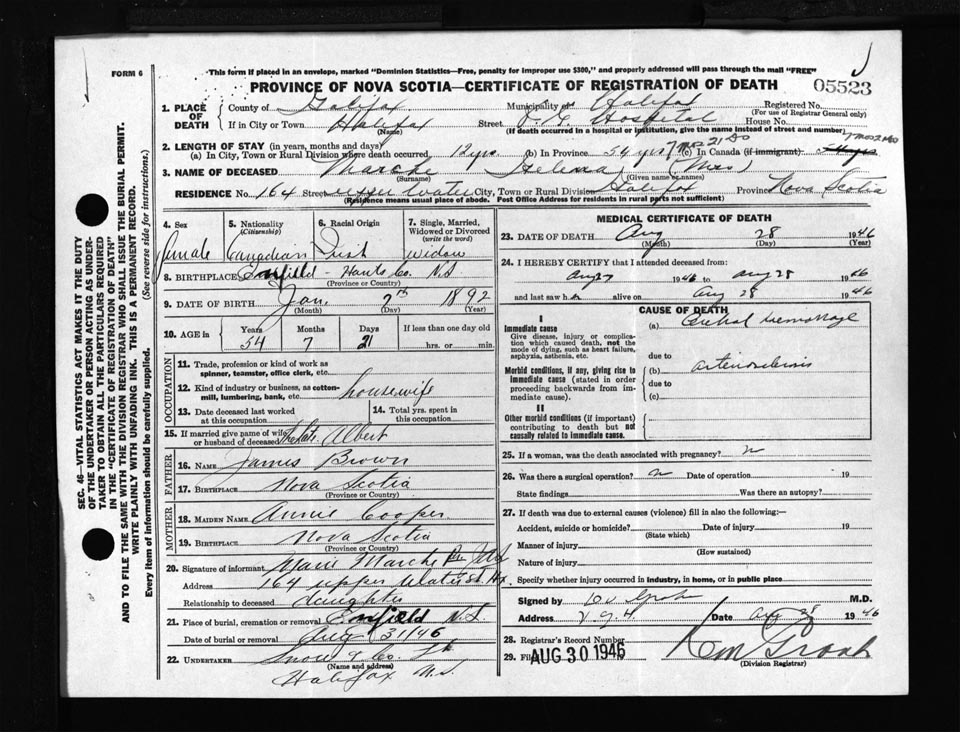 FORM 6
"This form if placed in an envelope, marked "Dominion Statistics—Free, penalty for improper use $300," and properly addressed will pass through the mail "FREE"
PROVINCE OF NOVA SCOTIA—CERTIFICATE OF REGISTRATION OF DEATH
05523
1. PLACE OF DEATH
County of Halifax Municipality of Halifax Registered No.
(For use of Registrar General only)
If in City or Town Halifax Street V. G. Hospital House No.
(Name) (If death occurred in a hospital or institution, give the name instead of street and number)
2. LENGTH OF STAY (in years, months and days)
(a) In City, Town or Rural Division where death occurred 12 yrs. (b) In Province 54 yrs 7 mos 21 ds (c) In Canada (if immigrant)
3. NAME OF DECEASED Marche Helena (Mrs)
(Surname) (Given name or names)
RESIDENCE No. 164 Street upper Water City, Town or Rural Division Halifax Province Nova Scotia
(Residence means usual place of abode. Post Office Address for residents in rural parts not sufficient)
SEC. 46—VITAL STATISTICS ACT MAKES IT THE DUTY
OF THE UNDERTAKER OR PERSON ACTING AS UNDER-
TAKER TO OBTAIN ALL THE PARTICULARS REQUIRED
IN THE "CERTIFICATE OF REGISTRATION OF DEATH"
AND TO FILE THE SAME WITH THE DIVISION REGISTRAR WHO SHALL ISSUE THE BURIAL PERMIT.
WRITE PLAINLY WITH UNFADING INK. THIS IS A PERMANENT RECORD.
Every item of information should be carefully supplied. (See reverse side for instructions.)
4. Sex 5. Nationality (Citizenship) 6. Racial Origin 7. Single, Married, Widowed or Divorced (write the word)
female Canadian Irish Widow
8. BIRTHPLACE Enfield - Hants Co. N.S
(Province or Country)
9. DATE OF BIRTH Jan. 7th 1892
(Month) (Day) (Year)
10. AGE in Years Months Days If less than one day old
54 7 21 hrs. or min.
OCCUPATION
11. Trade, profession or kind of work as spinner, teamster, office clerk, etc.
12. Kind of industry or business, as cotton-mill, lumbering, bank, etc. housewife
13. Date deceased last worked at this occupation
14. Total yrs. spent in this occupation
15. If married give name of wife or husband of deceased the late Albert
FATHER
16. NAME James Brown
17. BIRTHPLACE Nova Scotia
(Province or Country)
MOTHER
18. MAIDEN NAME Annie Cooper
19. BIRTHPLACE Nova Scotia
(Province or Country)
20. Signature of informant Marie Marche
Address 164 upper Water St. Hx
Relationship to deceased daughter
21. Place of burial, cremation or removal Enfield N.S.
Date of burial or removal Aug 31/46
22. UNDERTAKER Snow & Co. Ltd
(Name and address)
Halifax N.S.
MEDICAL CERTIFICATE OF DEATH
23. DATE OF DEATH Aug 28 1946
(Month) (Day) (Year)
24. I HEREBY CERTIFY that I attended deceased from:
1946 to Aug 28 1946
and last saw h alive on Aug 28 1946
CAUSE OF DEATH
I
Immediate cause
Give disease, injury or complication which caused death, not the mode of dying, such as heart failure, asphyxia, asthenia, etc.
(a) Cerebral hemorrhage
due to
Morbid conditions, if any, giving rise to immediate cause (stated in order proceeding backwards from immediate cause).
(b) arteriosclerosis
due to
(c)
II
Other morbid conditions (if important) contributing to death but not causally related to immediate cause.
25. If a woman, was the death associated with pregnancy?
26. Was there a surgical operation? Date of operation 19
State findings Was there an autopsy?
27. If death was due to external causes (violence) fill in also the following:—
Accident, suicide or homicide? Date of injury 19
(State which)
Manner of injury
(How sustained)
Nature of injury
Specify whether injury occurred in industry, in home, or in public place
Signed by M.D.
Address V. G. H. Date Aug 28 1946
28. Registrar's Record Number
29. Filed AUG 30 1946
(Division Registrar)